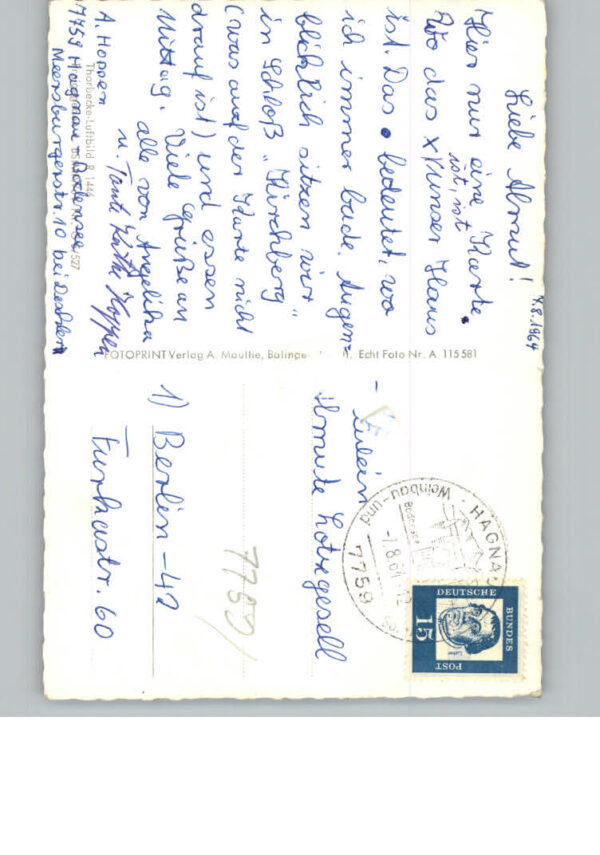 7.8.1964
Liebe Almut!
Hier nur eine Karte.
Wo das x ist, ist unser Haus
ist. Das • bedeutet, wo
ich immer bade. Augen=
blicklich sitzen wir
in Schloß "Kirchberg"
(was auf der Karte nicht
drauf ist) und essen
Mittag. Viele Grüße an
alle von Angelika
u. Tante Käthe Hoppen
A. Hoppen
7759 Hagnau-Bodensee
Meersburgerstr. 10 bei
Thorbecke-Luftbild R 1444
FOTOPRINT Verlag A. Mauthe, Balingen Echt Foto Nr. A 115 581
HAGNAU
Weinbau-und
Bodensee
7759
DEUTSCHE
BUNDES
POST
15
Luther
Fräulein
Almute Lotregesell
1) Berlin-42
Furkastr. 60
7759/